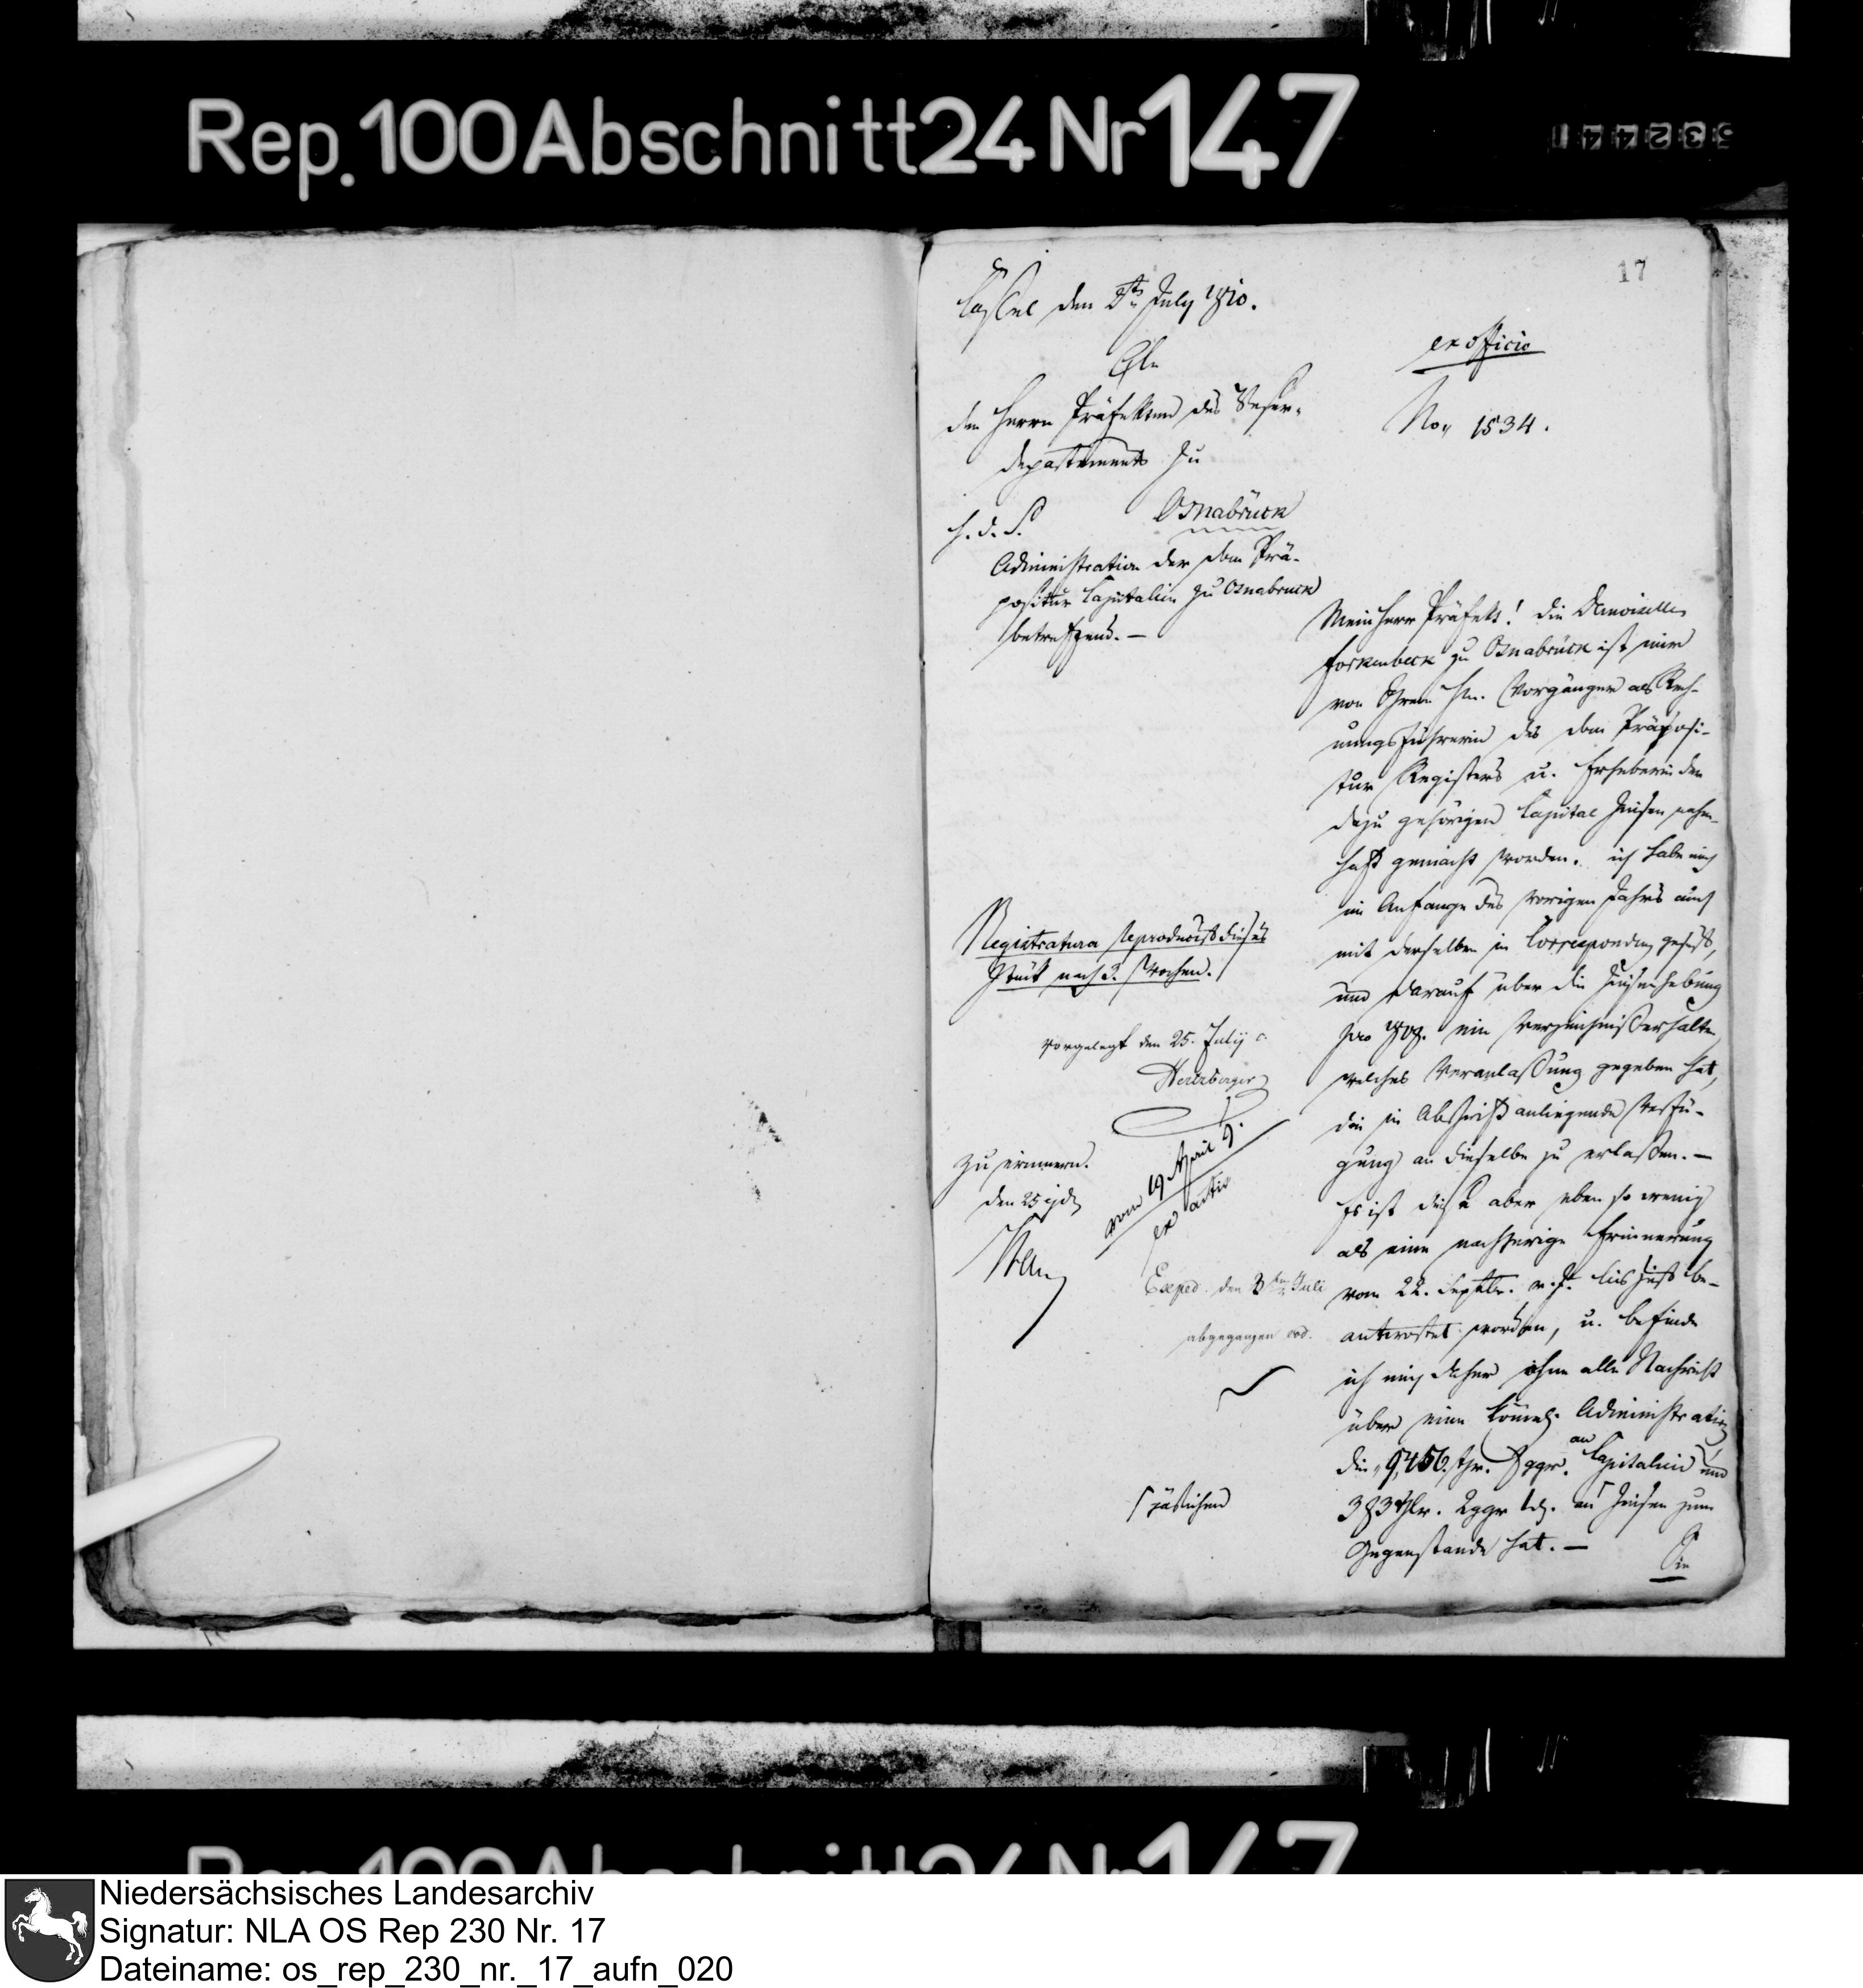 Rep. 100 Abschnitt 24 Nr 147
17
Cassel den July 1810.
An
den Herrn Präfekten des Weser-
departements zu
Osnabrück
h. d. S.
Administration der dom Prä-
positur Capitalien zu Osnabrück
betreffend. —
ex officio
No. 1534.
Mein Herr Präfekt! die Demoiselle
Forkenbeck zu Osnabrück ist mir
von Ihrem Hrn. Vorgänger als Rech-
nungsführerin des dom Präposi-
tur Registers u. Erheberin der
dazu gehörigen Capital Zinsen nahm-
haft gemacht worden. ich habe mich
im Anfange des vorigen Jahrs auch
mit derselben in Correspondenz gesetzt,
und darauf über die Zinserhebung
pro 1808. ein Verzeichniß erhalten,
welches Veranlaßung gegeben hat,
die in Abschrift anliegende Verfü-
gung an dieselbe zu erlaßen. —
Es ist diese aber eben so wenig
als eine nachherige Erinnerung
vom 22. Septbr. v. J. bis jetzt be-
antwortet worden, u. befinde
ich mich daher ohne alle Nachricht
über eine Administration,
die 9,456. thr. 8 ggr. an Capitalien und
383 thlr. 2 ggr. an Zinsen zum
Gegenstande hat. —
Die
Registratura reproducirt dieses
Stück nach 3. Wochen.
vorgelegt den 25. July c.
Hertzberger
vom 19 April 9.
zu erinnern.
den 25 ejd.
Exped. den 8ten Juli
abgegangen eod.
jährlichen
Niedersächsisches Landesarchiv
Signatur: NLA OS Rep 230 Nr. 17
Dateiname: os_rep_230_nr._17_aufn_020